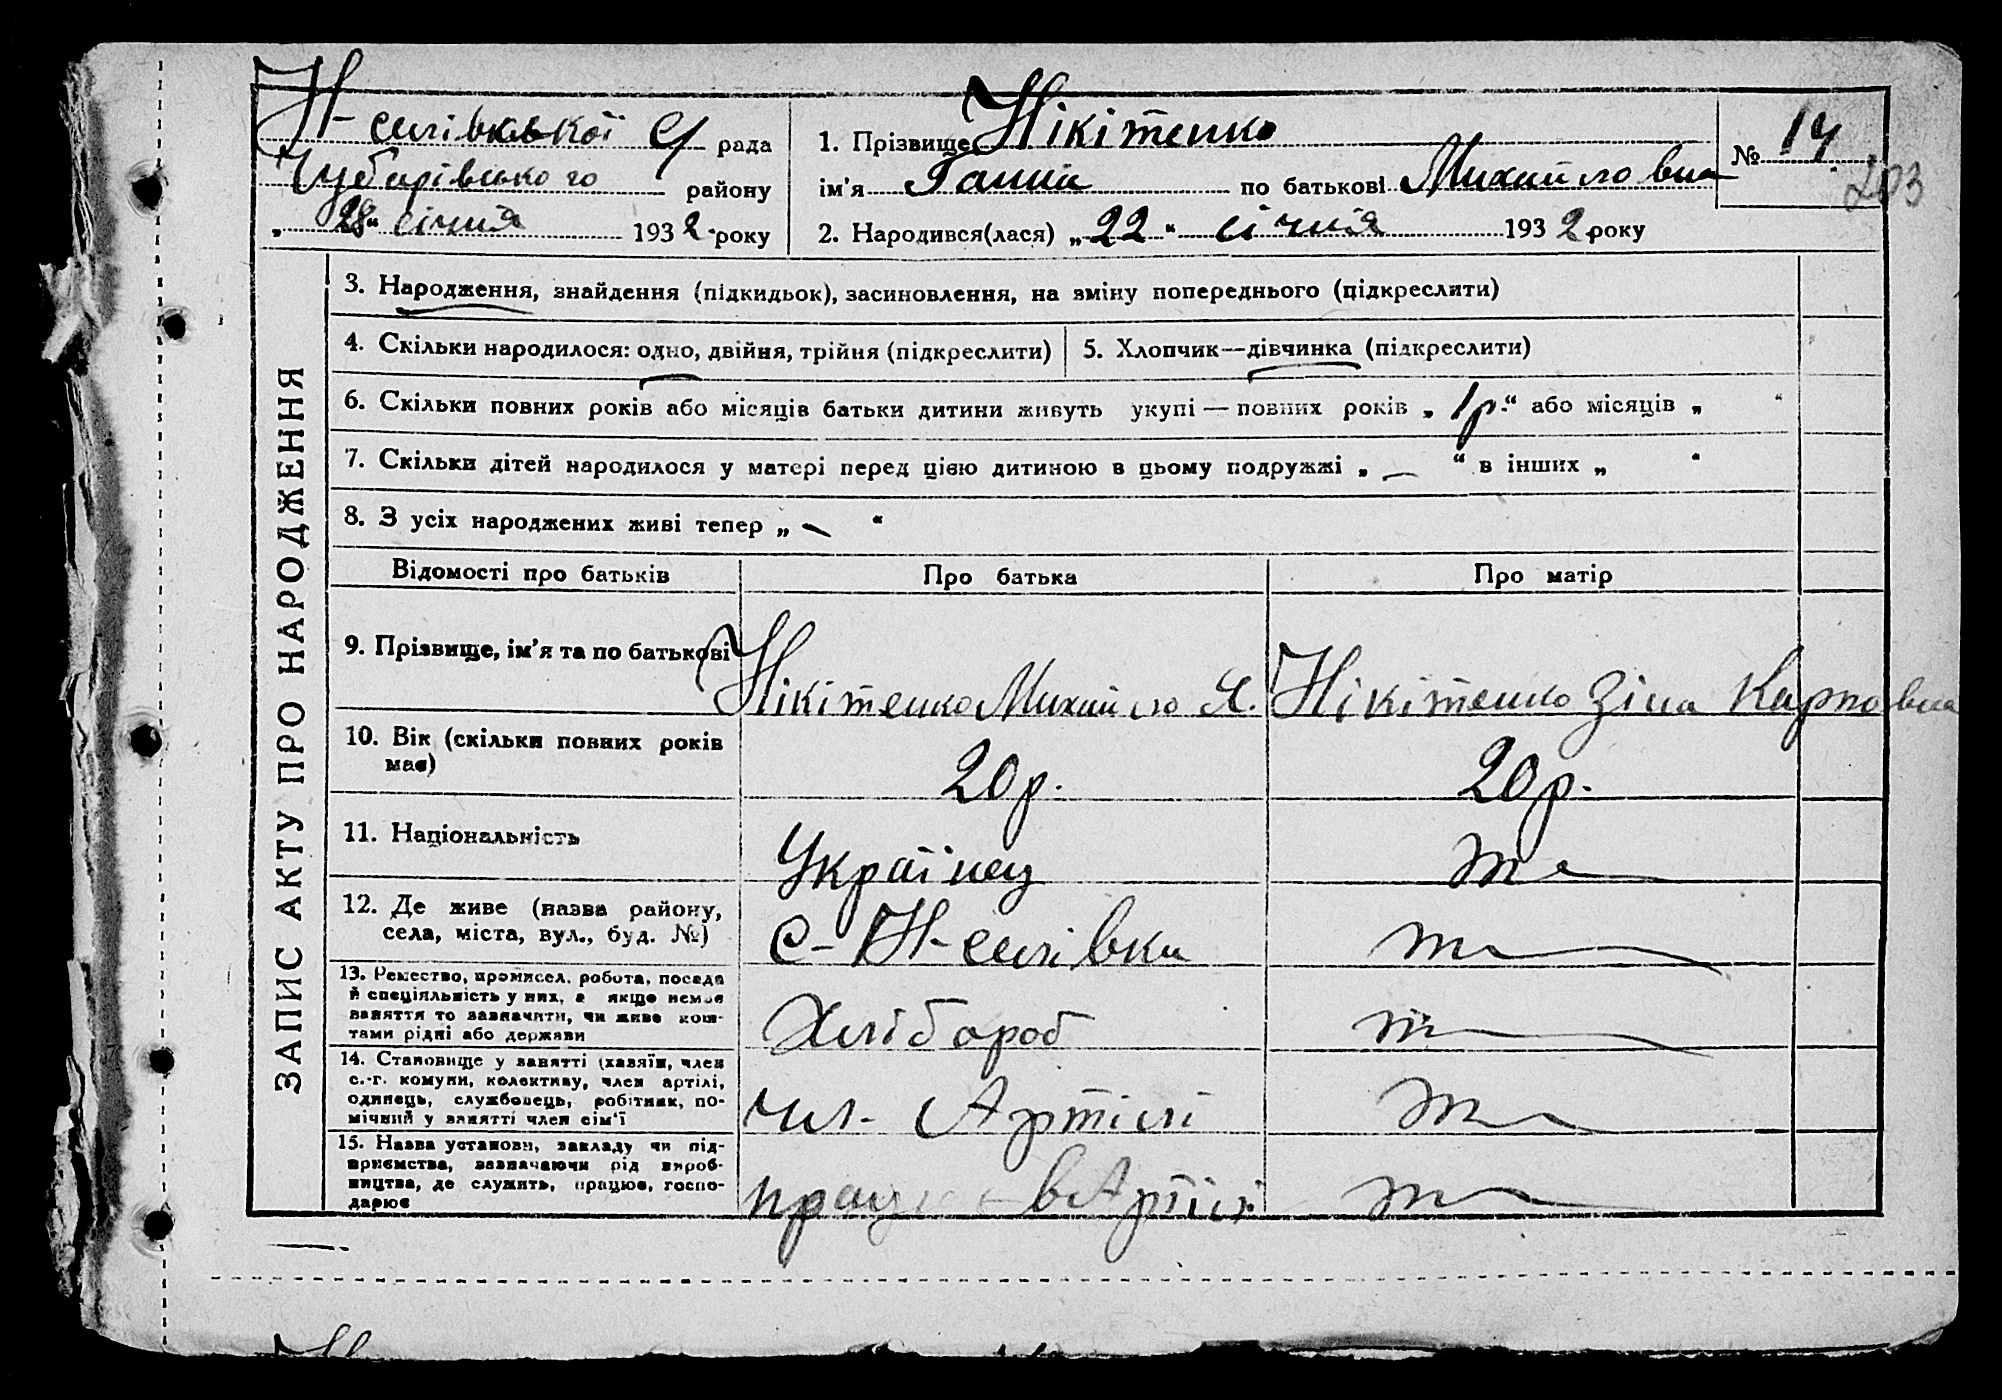 Н-селівської С/ рада
Чубарівського району
„28“ січня 1932 року
1. Прізвище Нікітенко
ім'я Ганна по батькові Михайловна
2. Народився(лася) „22“ січня 1932 року
№ 14
203
ЗАПИС АКТУ ПРО НАРОДЖЕННЯ
3. Народження, знайдення (підкидьок), засиновлення, на зміну попереднього (підкреслити)
4. Скільки народилося: одно, двійня, трійня (підкреслити)
5. Хлопчик—дівчинка (підкреслити)
6. Скільки повних років або місяців батьки дитини живуть укупі — повних років „1р.“ або місяців „ “
7. Скільки дітей народилося у матері перед цією дитиною в цьому подружжі „—“ в інших „ “
8. З усіх народжених живі тепер „—“
Відомості про батьків Про батька Про матір
9. Прізвище, ім'я та по батькові Нікітенко Михайло Я. Нікітенко Зіна Карповна
10. Вік (скільки повних років
має) 20р. 20р.
11. Національність Українец те
12. Де живе (назва району,
села, міста, вул., буд. №) с-Н-селівка
13. Ремество, промисел, робота, посада
й спеціяльність у них, а якщо немає
заняття то зазначити, чи живе кош-
тами рідні або держави Хлібороб
14. Становище у занятті (хазяїн, член
с.-г. комуни, колективу, член артілі,
одинець, службовець, робітник, по-
мічний у занятті член сім'ї чл. Артілі
15. Назва установи, закладу чи під-
приємства, зазначаючи рід вироб-
ництва, де служить, працює, госпо-
дарює працює в Артілі